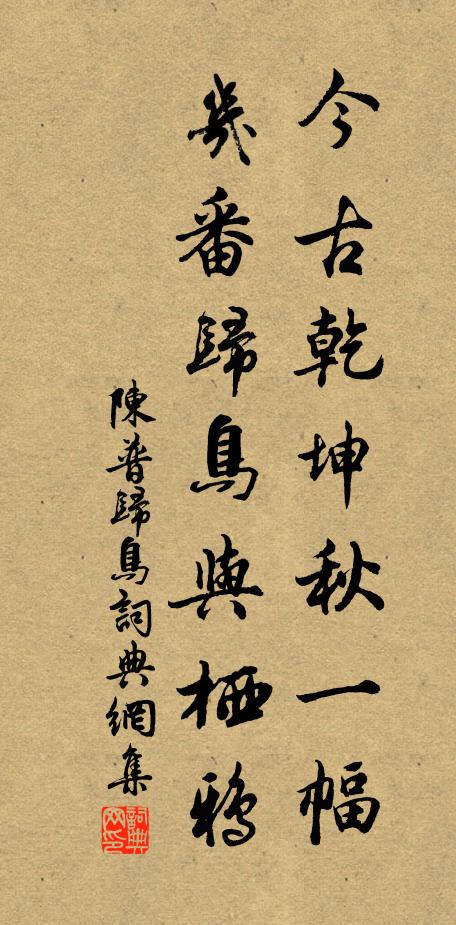 今古乾坤秋一幅
幾番歸鳥與栖鴉
陳普歸鳥詞典網集
詞典網印